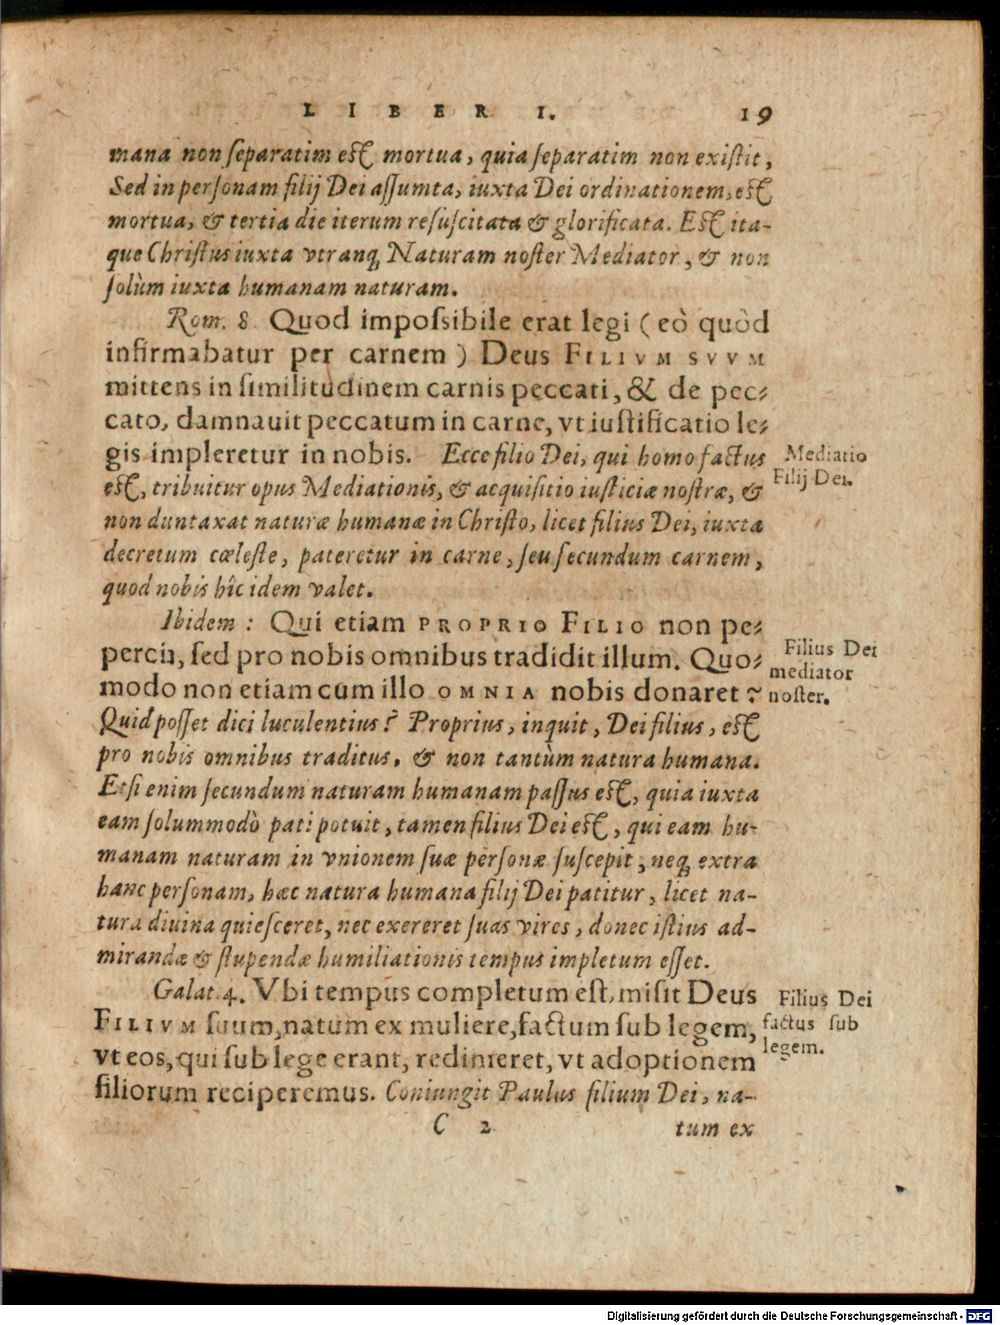 LIBER I. 19
mana non ſeparatim eſt mortua, quia ſeparatim non exiſtit,
Sed in perſonam filij Dei aſſumta, iuxta Dei ordinationem, eſt
mortua, & tertia die iterum reſuſcitata & glorificata. Eſt ita-
que Chriſtus iuxta vtranq́ue Naturam noſter Mediator, & non
ſolùm iuxta humanam naturam.
Rom. 8. Quod impoſsibile erat legi (eò quòd
infirmabatur per carnem) Deus FILIVM SVVM
mittens in ſimilitudinem carnis peccati, & de pec-
cato, damnauit peccatum in carne, vt iuſtificatio le-
gis impleretur in nobis. Ecce filio Dei, qui homo factus
eſt, tribuitur opus Mediationis, & acquiſitio iuſticiæ noſtræ, &
non duntaxat naturæ humanæ in Chriſto, licet filius Dei, iuxta
decretum cœleſte, pateretur in carne, ſeu ſecundum carnem,
quod nobis hîc idem valet.
Mediatio
Filij Dei.
Ibidem: Qui etiam PROPRIO FILIO non pe-
percit, ſed pro nobis omnibus tradidit illum. Quo-
modo non etiam cum illo OMNIA nobis donaret?
Quid poſſet dici luculentius? Proprius, inquit, Dei filius, eſt
pro nobis omnibus traditus, & non tantùm natura humana.
Etſi enim ſecundum naturam humanam paſſus eſt, quia iuxta
eam ſolummodò pati potuit, tamen filius Dei eſt, qui eam hu-
manam naturam in vnionem ſuæ perſonæ ſuſcepit, neq; extra
hanc perſonam, hæc natura humana filij Dei patitur, licet na-
tura diuina quieſceret, nec exereret ſuas vires, donec iſtius ad-
mirandæ & ſtupendæ humiliationis tempus impletum eſſet.
Filius Dei
mediator
noſter.
Galat. 4. Vbi tempus completum eſt, miſit Deus
FILIVM ſuum, natum ex muliere, factum ſub legem,
vt eos, qui ſub lege erant, redimeret, vt adoptionem
filiorum reciperemus. Coniungit Paulus filium Dei, na-
Filius Dei
factus ſub
legem.
C 2 tum ex
Digitalisierung gefördert durch die Deutsche Forschungsgemeinschaft - DFG